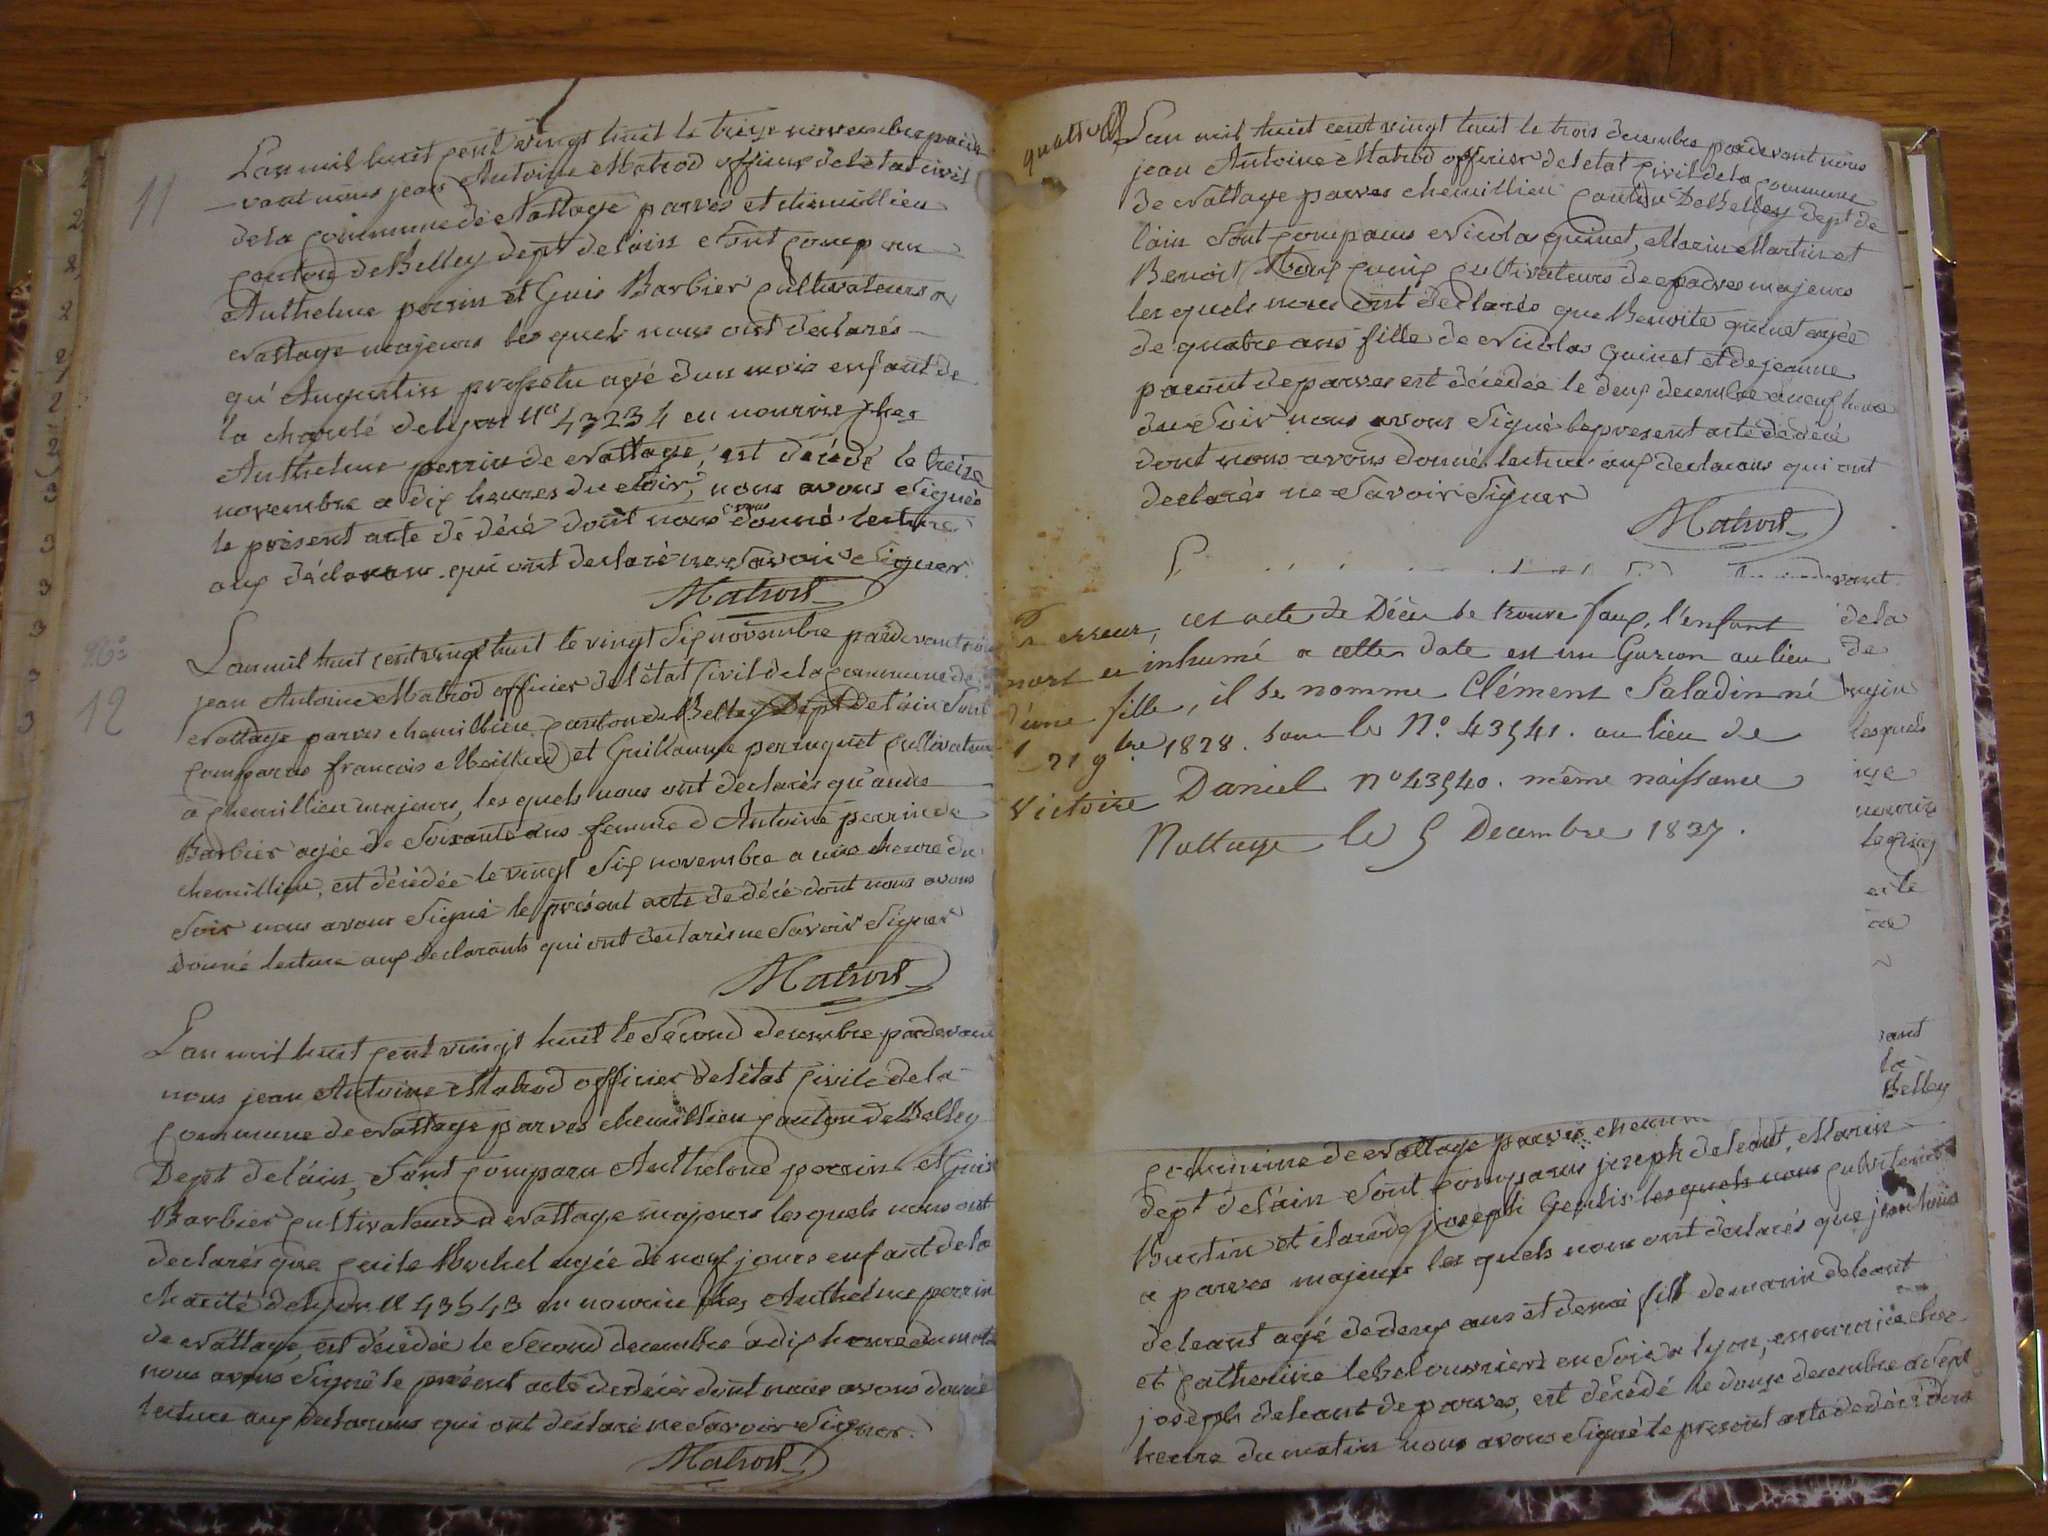 11
L'an mil huit cent vingt huit le treize novembre parde
vant nous jean Antoine Matrod officier de letat civil
de la commune de Nattage parves et chemillieu
canton de Belley dept de lain Sont comparu
Anthelme perrin et Guis Barbier cultivateurs a
Nattage majeurs les quels nous ont declarés
qu'Augustin agé dun mois enfant de
la charité de lyon No 43234 en nourrise chez
Anthelme perrin de Nattage, est décédé le treize
novembre a dix heures du Soir, nous avons Signés
le présent acte de décé dont nous avons donné lecture
aux déclarans qui ont declaré ne Savoir Signer
Matrod
12
L'an mil huit cent vingt huit le vingt Six novembre pardevant
jean Antoine Matrod officier de l'état Civil de la commune de
Nattage parves chemillieu canton de Belley Dept de l'ain Sont
comparus francois et Guillaume perruquet cultivateurs
a chemillieu majeurs, les quels nous ont declarés qu'
Barbier agée de Soixante ans femme d'Antoine perrin de
chemillieu, est décédée le vingt Six novembre a une heure du
Soir nous avons Signé le présent acte de décé dont nous avons
donné lecture aux declarants qui ont declarés ne Savoir Signer
Matrod
L'an mil huit cent vingt huit le Second decembre pardevant
nous jean Antoine Matrod officier de létat Civile de la
commune de Nattage parves chemillieu canton de Belley
Dept de láin, Sont comparu Anthelme perrin et Guis
Barbier cultivateurs a Nattage majeurs les quels nous ont
declarés que agée de neuf jours enfant de la
charité de lyon No 43543 en nourise chez Anthelme perrin
de Nattage, est décédée le Second decembre a dix heure du matin
nous avons Signé le présent acte de décé dont nous avons donné
lecture aux declarans qui ont declaré ne Savoir Signer.
Matrod
L'an mil huit cent vingt huit le trois decembre pardevant nous
jean Antoine Matrod officier de letat Civil de la commune
de Nattage parves chemillieu canton De Belley dept de
láin Sont comparus Nicolas guinet, Marin Martin et
Benoit cultivateurs de parves majeurs
les quels nous ont declarés que Benoite guinet agée
de quatre ans fille de Nicolas guinet et de jeanne
de parves est décédée le deux decembre a neuf heure
du Soir nous avons Signé le present acte de décé
dont nous avons donné lecture aux declarans qui ont
declarés ne Savoir Signer
Matrod
vant
erreur, cet acte de Décès se trouve faux, l'enfant
de la
mort et inhumé a cette date est un Garçon au lieu
de
d'une fille, il se nomme Clément Saladin né
21 9bre 1828. sous le No. 43541. au lieu de
lesquels
Victoire Daniel No 43540. même naissance
Nattage le 5 Decembre 1837.
este
vant
la
Belley
commune de Nattage parves
dept de láin Sont comparus joseph deleant, Marin
et claude joseph les quels nous cultivateurs
a parves majeur les quels nous ont declarés que jean louis
deleant agé de deux ans et demi fils de marin deleant
et catherine ouvriers en Soie a lyon, en nourrice chez
joseph deleant de parves, est décédé le douze decembre a Sept
heure du matin nous avons Signé le present acte de décé dont